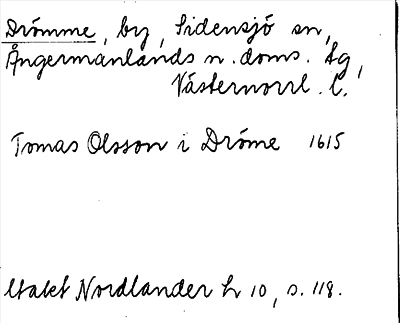 Drömme, by, Sidensjö sn,
Ångermanlands n. doms. tg,
Västernorrl. l.
Tomas Olsson i Dröme 1615
Utalet Nordlander h 10, s. 118.